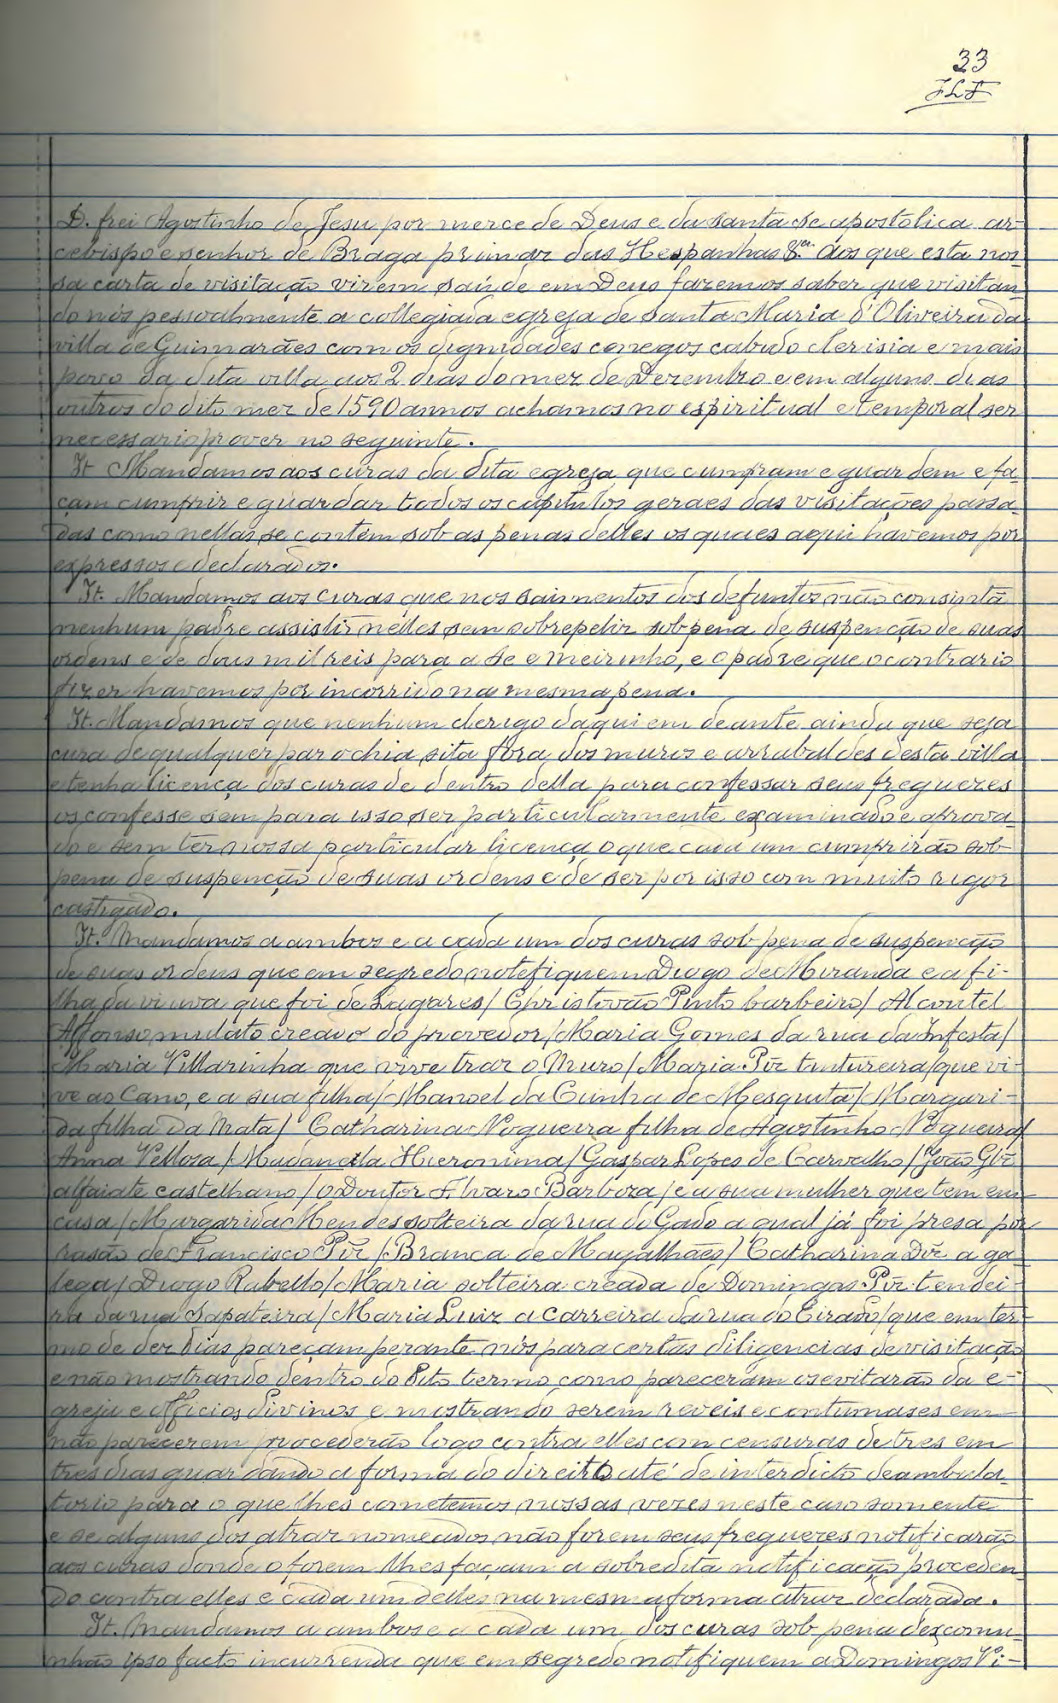 33
JLF
D. frei Agostinho de Jesu por merce de Deus e da santa se apostolica ar-
cebispo e senhor de Braga primaz das Hespanhas &.ª aos que esta nos-
sa carta de visitação virem saúde em Deus fazemos saber que visitan-
do nós pessoalmente a collegiada egreja de Santa Maria d'Oliveira da
villa de Guimarães com os dignidades conegos cabido clerisia e mais
povo da dita villa aos 2 dias do mez de Dezembro e em alguns dias
outros do dito mez de 1590 annos achamos no espiritual e temporal ser
necessario prover no seguinte.
It Mandamos aos curas da dita egreja que cumpram e guardem e fa-
çam cumprir e guardar todos os capitulos geraes das visitações passa-
das como nellas se contêm sob as penas delles os quaes aqui havemos por
expressos e declarados.
It. Mandamos aos curas que nos saimentos dos defuntos não consintã
nenhum padre assistir nelles sem sobrepeliz sob pena de suspenção de suas
ordens e de dous mil reis para a se e meirinho, e o padre que o contrario
fizer havemos por incorrido na mesma pena.
It. Mandamos que nenhum clerigo daqui em deante ainda que seja
cura de qualquer parochia sita fora dos muros e arrabaldes desta villa
e tenha licença dos curas de dentro della para confessar seus freguezes
os confesse sem para isso ser particularmente examinado e aprova-
do e sem ter nossa particular licença o que cada um cumprirão sob
pena de suspenção de suas ordens e de ser por isso com muito rigor
castigado.
It. Mandamos a ambos e a cada um dos curas sob pena de suspenção
de suas ordens que em segredo notifiquem Diogo de Miranda e a fi-
lha da viuva que foi de Lagares/ Christovão Pinto barbeiro/ Alcontel
Affonso mulato creado do provedor/ Maria Gomes da rua da Infesta/
Maria Villarinha que vive traz o Muro/ Maria Piz tintureira/ que vi-
ve ao Cano, e a sua filha/ Manoel da Cunha de Mesquita/ Margari-
da filha da Mata/ Catharina Nogueira filha de Agostinho Nogueira/
Anna Vellosa/ Madanella Hieronima/ Gaspar Lopes de Carvalho/ João Glz
alfaiate castelhano/ o Doutor Alvaro Barboza/ e a sua mulher que tem em
casa/ Margarida Mendes solteira da rua do Gado a qual já foi presa por
rasão de Francisco Piz/ Branca de Magalhães/ Catharina Diz a ga-
lega/ Diogo Rabello/ Maria solteira creada de Domingas Piz tendei-
ra da rua Sapateira/ Maria Luiz a Carreira da rua do Eirado/ que em ter-
mo de dez dias pareçam perante nós para certas diligencias de visitação
e não mostrando dentro do dito termo como pareceram os evitarão da e-
greja e officios divinos e mostrando serem reveis e contumases em
não parecerem procederão logo contra elles com censuras de tres em
tres dias guardando a forma do direito até de interdicto deambula-
torio para o que lhes cometemos nossas vezes neste caso somente
e se alguns dos atraz nomeados não forem seus freguezes notificarão
aos curas donde o forem lhes façam a sobredita notificação proceden-
do contra elles e cada um delles na mesma forma atraz declarada.
It. Mandamos a ambos e a cada um dos curas sob pena d'excomu-
nhão ipso facto incurrenda que em segredo notifiquem a Domingos Vi-